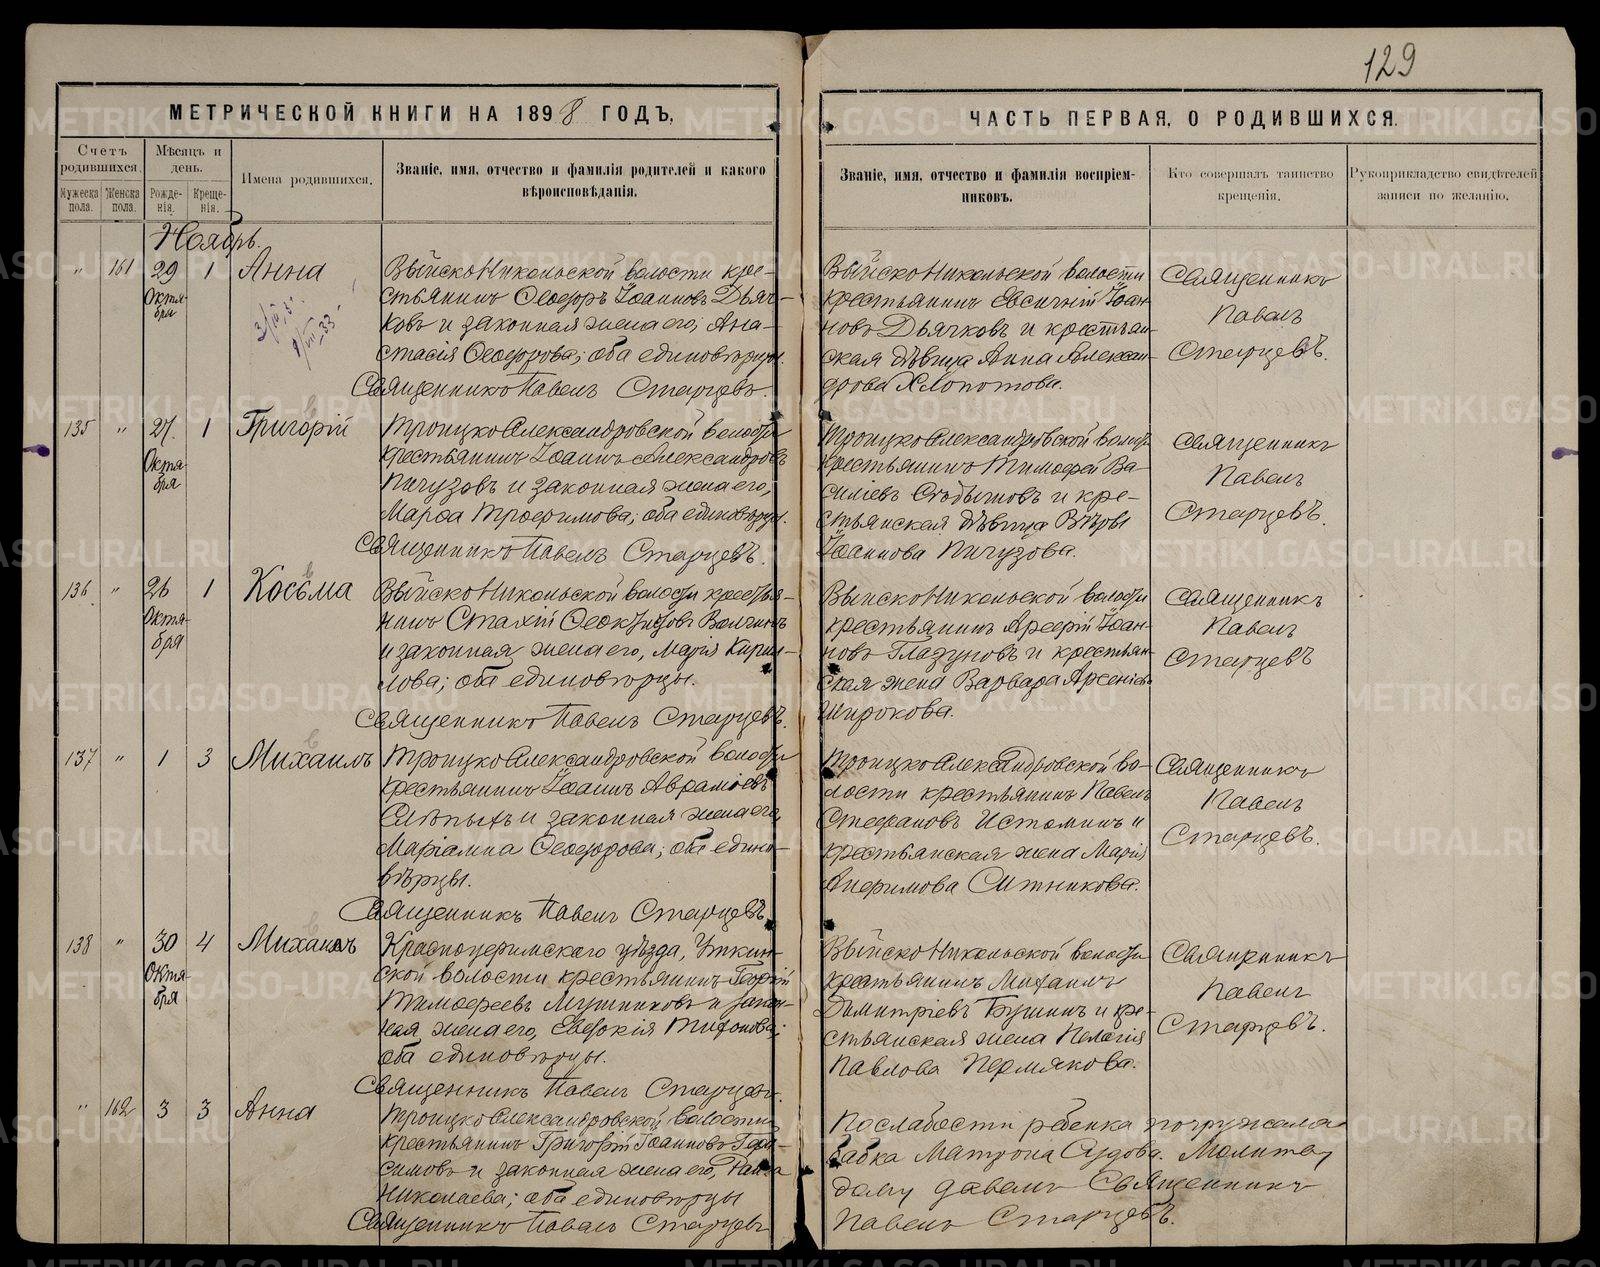 129
МЕТРИЧЕСКОЙ КНИГИ НА 1898 ГОДЪ,
ЧАСТЬ ПЕРВАЯ, О РОДИВШИХСЯ.
Счетъ родившихся.
Мужеска пола.
Женска пола.
Мѣсяцъ и день.
Рожденія.
Крещенія.
Имена родившихся.
Званіе, имя, отчество и фамилія родителей и какого
вѣроисповѣданія.
Званіе, имя, отчество и фамилія воспріем-
никовъ.
Кто совершалъ таинство
крещенія.
Рукоприкладство свидѣтелей
записи по желанію.
Ноябрь.
" 161 29 Октября 1 Анна
Выйско Никольской волости кре-
стьянинъ Ѳеодоръ Іоанновъ Дьяч-
ковъ и законная жена его, Ана-
стасія Ѳеодорова; оба единовѣрцы.
Священникъ Павелъ Старцевъ.
Выйско Никольской волости
крестьянинъ Евсигній Іоан-
новъ Дьячковъ и крестьян-
ская дѣвица Анна Алексан-
дрова Хлопотова.
Священникъ
Павелъ
Старцевъ.
135 " 27. Октября 1 Григорій
Троицко Александровской волости
крестьянинъ Іоаннъ Александровъ
Пичуговъ и законная жена его,
Марѳа Трофимова; оба единовѣрцы.
Священникъ Павелъ Старцевъ.
Троицко Александровской волости
крестьянинъ Тимоѳей Ва-
силіевъ и кре-
стьянская дѣвица Вѣра
Іоаннова Пичугова.
Священникъ
Павелъ
Старцевъ.
136 " 26 Октября 1 Косьма
Выйско Никольской волости крестья-
нинъ Стахій Волчихинъ
и законная жена его, Марія Кирил-
лова; оба единовѣрцы.
Священникъ Павелъ Старцевъ.
Выйско Никольской волости
крестьянинъ Іоан-
новъ Глазуновъ и крестьян-
ская жена Варвара Арсеніева
Широкова.
Священникъ
Павелъ
Старцевъ
137 " 1 3 Михаилъ
Троицко Александровской волости
крестьянинъ Іоаннъ Авраміевъ
Слѣпыхъ и законная жена его,
Маріамна Ѳеодорова; оба едино-
вѣрцы.
Священникъ Павелъ Старцевъ.
Троицко Александровской во-
лости крестьянинъ Павелъ
Стефановъ Истоминъ и
крестьянская жена Марія
Анѳимова Ситникова.
Священникъ
Павелъ
Старцевъ.
138 " 30 Октября 4 Михаилъ
Красноуфимскаго уѣзда, Уткин-
ской волости крестьянинъ Георгій
Тимоѳеевъ Мушниковъ и закон-
ная жена его, Евдокія Тихонова;
оба единовѣрцы.
Священникъ Павелъ Старцевъ.
Выйско Никольской волости
крестьянинъ Михаилъ
Димитріевъ Бушинъ и кре-
стьянская жена Пелагія
Павлова Пермякова.
Священникъ
Павелъ
Старцевъ.
" 162 3 3 Анна
Троицко Александровской волости
крестьянинъ Григорій Іоанновъ Гера-
симовъ и законная жена его, Раиса
Николаева; оба единовѣрцы
Священникъ Павелъ Старцевъ
По слабости ребенка погружала
бабка Матрона Судова. Молитву
дому давалъ Священникъ
Павелъ Старцевъ.
METRIKI.GASO-URAL.RU